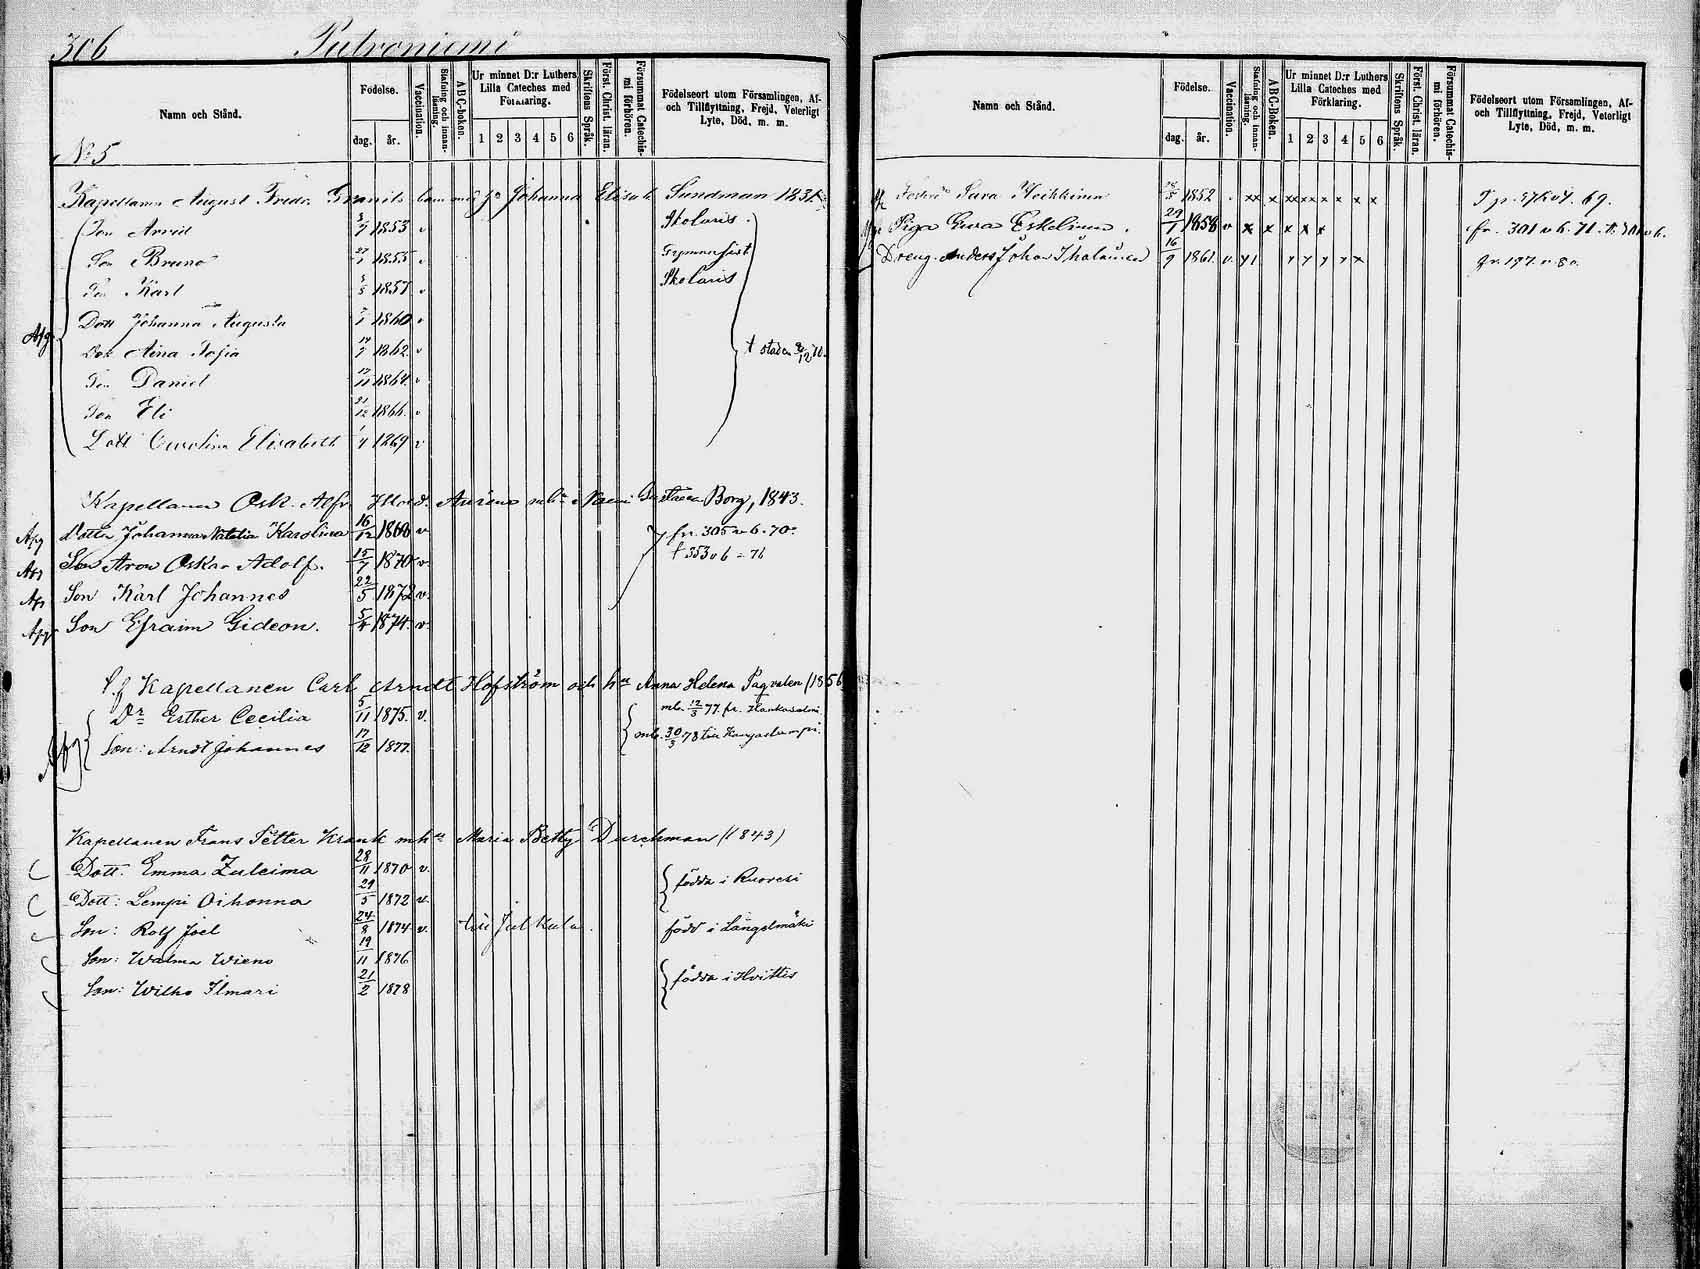 306 Putroniemi
Namn och Stånd.
Födelse.
dag. år.
Vaccination.
Stafning och innanläsning.
ABC-boken.
Ur minnet D:r Luthers Lilla Cateches med Förklaring.
1 2 3 4 5 6
Skriftens Språk.
Först. Christ. läran.
Försummat Catechismi förhören.
Födelseort utom Församlingen, Af- och Tillflyttning, Frejd, Veterligt Lyte, Död, m. m.
No 5
Kapellanen August Fredr. Granit Johanna Elisab Sundman
Son Arvid 1853 v Skolaris
Son Bruno 27/1 1855 v Gymnasist
Son Karl 1857 v Skolaris
Dott Johanna Augusta 1860 v
Dott Aina Sofia 1862 v
Afg † staden 10.
Son Daniel 1864 v
Son Eli 21/12 1866 v
Dott Carolina Elisabeth 1/4 1869 v
Kapellanen Osk. Alfr. Borg, 1843.
Afg dotter Johanna Natalia Karolina 16/12 1868 v fr. 305 v 6. 70.
Son Aron Oskar Adolf. 15/7 1870 v. † 353 v 6 = 76
Son Karl Johannes 22/5 1872 v.
Afg Son Efraim Gideon. 5/4 1874. v.
t.f Kapellanen Carl Arndt Hofström och h:u Anna Helena Pagvalen (1856
Dr Esther Cecilia 5/11 1875. v. mb. 12/3 77. fr. Hankasalmi
Afg Son: Arndt Johannes 17/12 1877. mb. 30/3 78 till Kangaslampi.
Kapellanen Frans Petter Krank m h:u Maria Betty Durchman (1843)
Dott: Emma Zuleima 28/11 1870 v. födda i Ruovesi
Dott: Lempi Oihonna 29/5 1872 v.
Son: Rolf Joel 24/8 1874 v. född i Längelmäki
Son: Walma Wieno 19/11 1876
Son: Wilho Ilmari 21/2 1878 födda i Hvittis
Namn och Stånd.
Födelse.
dag. år.
Vaccination.
Stafning och innanläsning.
ABC-boken.
Ur minnet D:r Luthers Lilla Cateches med Förklaring.
1 2 3 4 5 6
Skriftens Språk.
Först. Christ. läran.
Försummat Catechismi förhören.
Födelseort utom Församlingen, Af- och Tillflyttning, Frejd, Veterligt Lyte, Död, m. m.
Sara Heikkinen 1852 xx x xx x x x x x 69.
Piga Eeva Eskelinen. 29/1 1858 v x x x x x fr. 301 v 6. 71.
Dreng. Anders Johan Ihalainen 16/9 1861. v. fr. 197. v. 80.